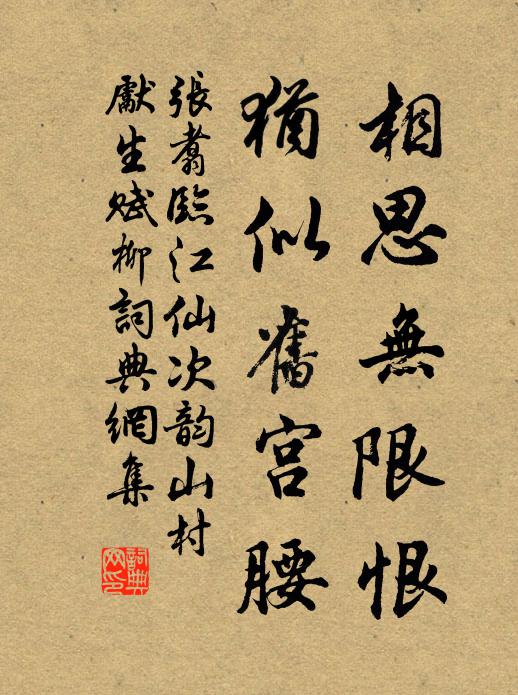 相思無限恨
猶似舊宮腰
張翥臨江仙次韵山村
獻生賦柳詞典網集
詞典網印